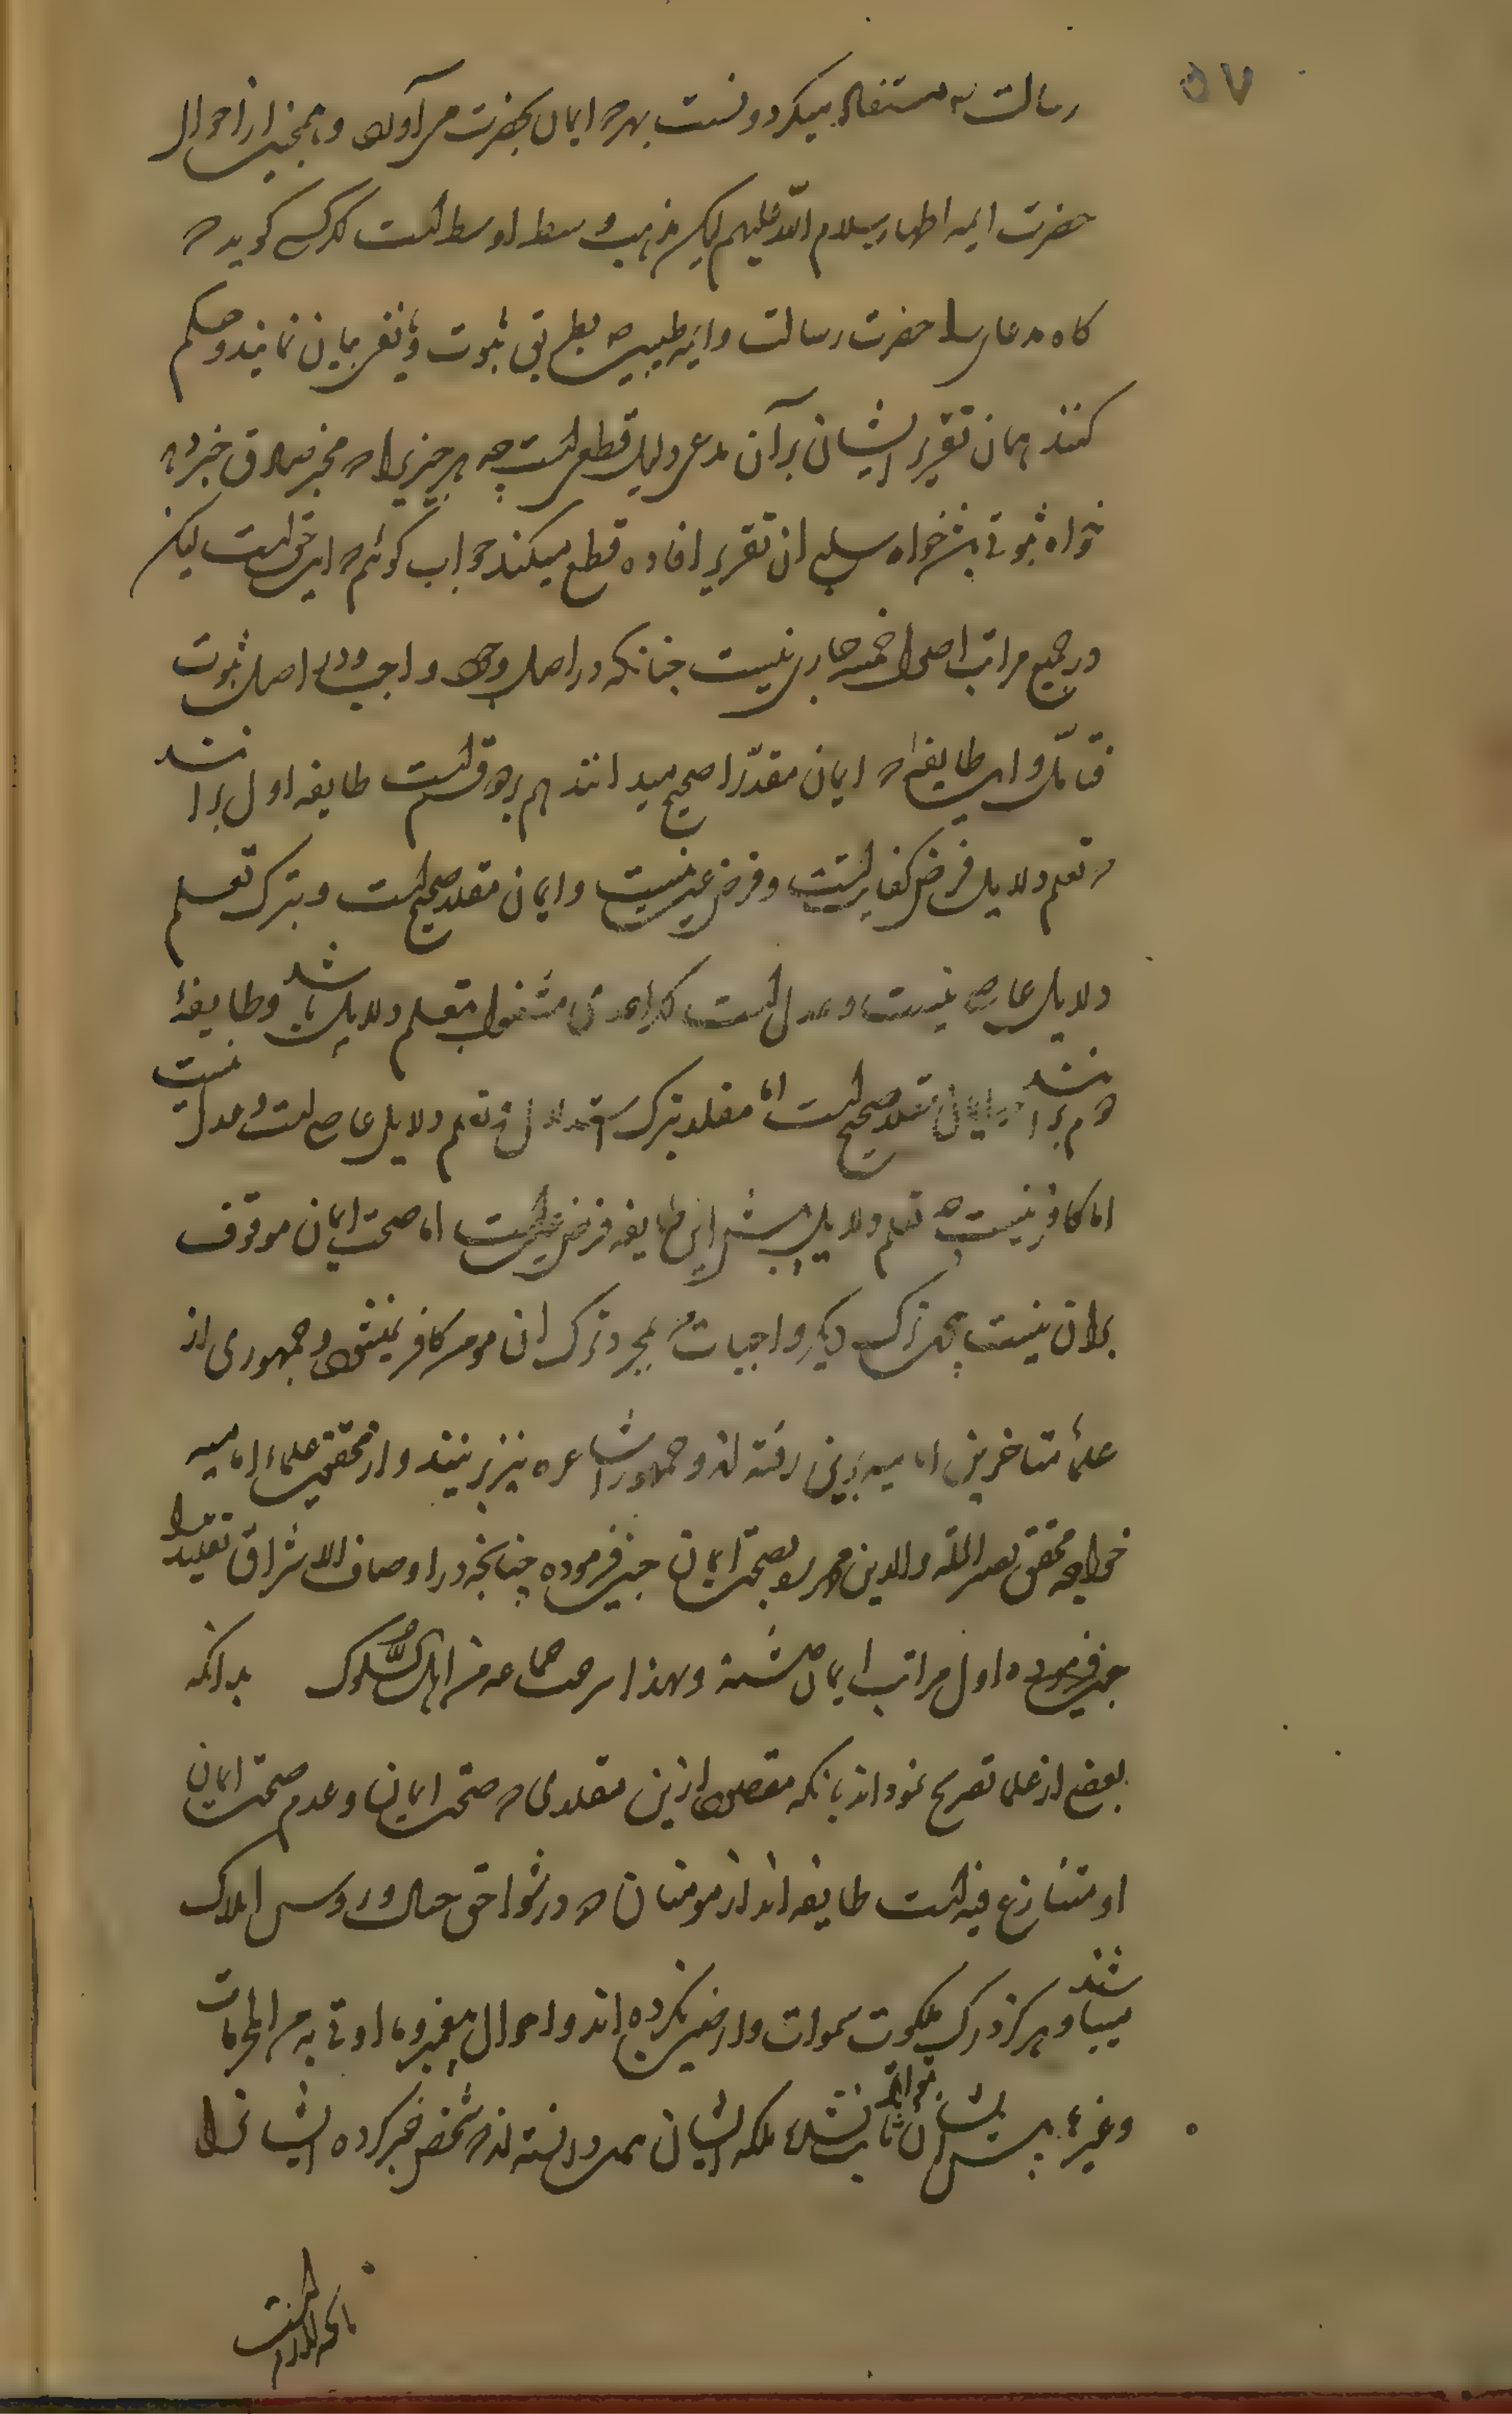 ۵۷
رسالت به استفاده میکرد و نسبت بهره ایمان بحضرت می آورد و همچنین از احوال
حضرت ایمه اطهار سلام الله علیهم لیکن مذهب وسط اوسط است که کسی گوید که
کاه مدعا را حضرت رسالت و ایمه طیبین بطریق ثبوت و یا نفی بیان نمایند و حکم
کنند همان تقریر ایشان بر آن مدعی دلیل قطعی است چه هر چیزی را که مخبر صادق خبر دهد
خواه ثبوتی باشد خواه سلبی ان تقریر افاده قطع میکند جواب گوئیم که این حق است لیکن
در جمیع مراتب اصول خمسه جاری نیست چنانکه در اصل وجود واجب و در اصل ثبوت
فتأمل و این طایفه که ایمان مقلد را صحیح میدانند هم بر دو قسم است طایفه اول بر انند
که تعلم دلایل فرض کفایست و فرض عین نیست و ایمان مقلد صحیح است و بترک تعلم
دلایل عاصی نیست و عدل است که احدی مشغول بتعلم دلایل باشد و طایفهٔ
دوم بر انند که ایمان مقلد صحیح است اما مقلد بترک استدلال و تعلم دلایل عاصی است و عدل نیست
اما کافر نیست چه تعلم دلایل پیش این طایفه فرض عین است اما صحت ایمان موقوف
بران نیست همچو ترک دیگر واجبات که بمجرد ترک ان مومن کافر نمیشود و جمهوری از
علمای متاخرین امامیه برین رفته اند و جمهور اشاعره نیز برینند و از محققین علماء امامیه
خواجه محقق نصیر الملة والدین محمد بصحت ایمان چنین فرموده چنانچه در اوصاف الاشراق تقلید را
چنین فرموده اول مراتب ایمان شمرده و بهذا صرح جماعه من اهل السلوک بدانکه
بعضی از علما تصریح نموده اند بانکه مقصود ازین مقلدی که صحت ایمان و عدم صحت ایمان
او متنازع فیه است طایفه اند از مومنان که در شواحق جبال و روس اتلال
میباشند و هرگز درک ملکوت سموات و ارضین نکرده اند و احوال پیغمبر و ما اوتی به من المعجزات
و غیرها پیش ایشان بتواتر ثابت نشده بلکه ایشان همین دانسته اند که شخصی خبر کرده ایشانرا